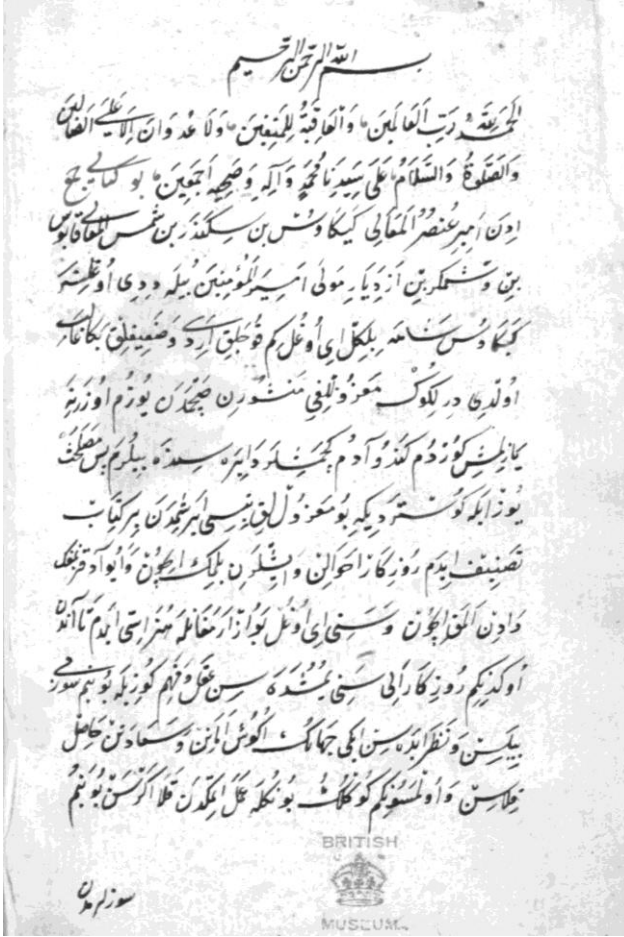 بسم الله الرحمن الرحيم
الحمد لله رب العالمين والعاقبة للمتقين ولا عدوان الا على الظالمين
والصلوة والسلام على سيدنا محمد وآله وصحبه اجمعين بو كتابى جمع
ايدن امير عنصر المعالى كيكاوس بن سكندر بن شمس المعالى قابوس
بن وشمكير بن ازديار مولى امير المؤمنين بيله ديدى اوغلنه
كيكاوس بلكل اى اوغل كم قوجلق اردى وضعيفلق بكا غالب
اولدى در لكوك معزوللغى منشورن صچمدن يوزم اوزرنه
يازلمش كوردم كندو آدم كچمشلر دايره سنده بيلورم پس مصلحت
يوز ايله كوستردى كه بو معزوللق نتيسى ايرشمدن بر كتاب
تصنيف ايدم روزكار احوالن وايشلرن بلمك ايچون وايو آدقزنمقلق
دادن المق ايچون وسنى اى اوغل بو آزار مغانله هنر استى ايدم تا آندن
اوكدنكم روزكار الى سنى يمشده سن عقل وفهم كوزيله بو بنم سوزمى
بيلسن ونظر ايده سن ايكى جهانك اكوش آدنن وسعادتن حاصل
قلاسن واولمسونكم كوكلك بونكله عمل ايتمكدن قلا اكر سن بو بنم
سوزلرمدن
BRITISH
MUSEUM